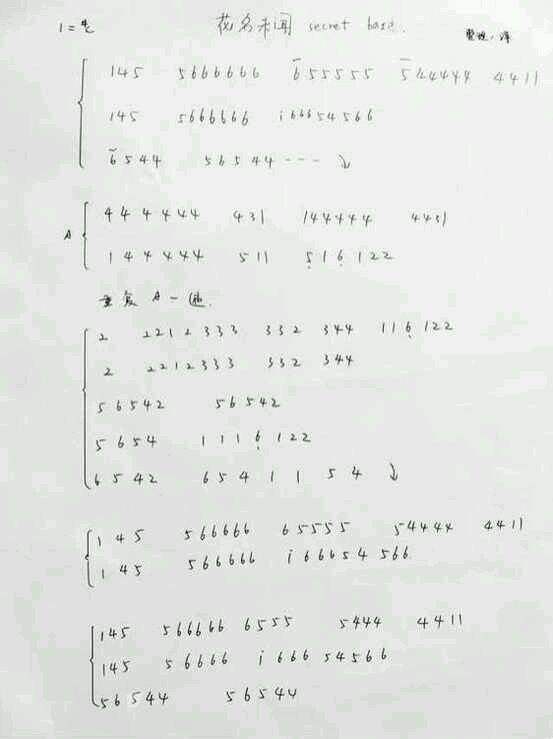 花名未闻 secret base.
145 5666666 6̄55555 5̄44444 4411
145 5666666 i66654566
6̄544 56544 --- ↓
A
444444 431 144444 4431
144444 511 5̣16̣122
重复A一遍
2 2212333 332 344 116̣122
2 2212333 332 344
56542 56542
5654 1116̣122
6542 65411 54 ↓
145 566666 65555 54444 4411
145 566666 i66654 566
145 566666 6555 5444 4411
145 56666 i66654566
56544 56544